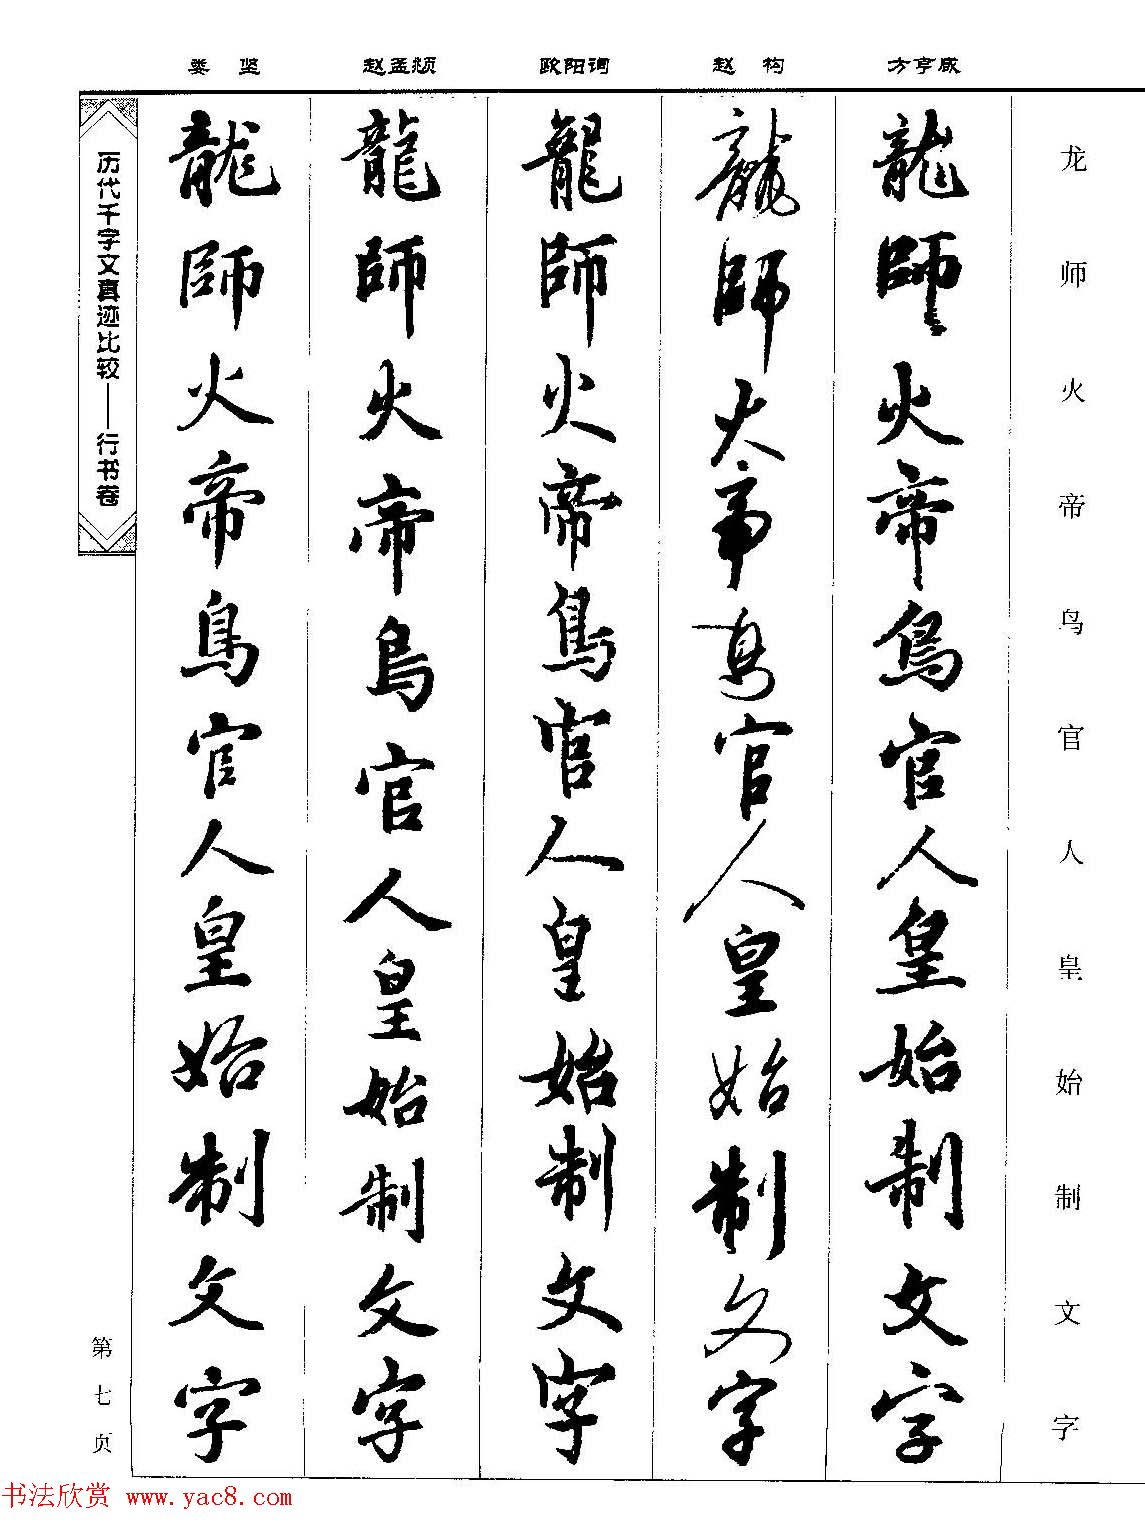 娄 坚 赵孟頫 欧阳询 赵 构 方亨咸
历代千字文真迹比较——行书卷
龙师火帝鸟官人皇始制文字
龍師火帝鳥官人皇始制文字
龍師火帝鳥官人皇始制文字
龍師火帝鳥官人皇始制文字
龍師火帝鳥官人皇始制文字
龍師火帝鳥官人皇始制文字
第七页
书法欣赏 www.yac8.com